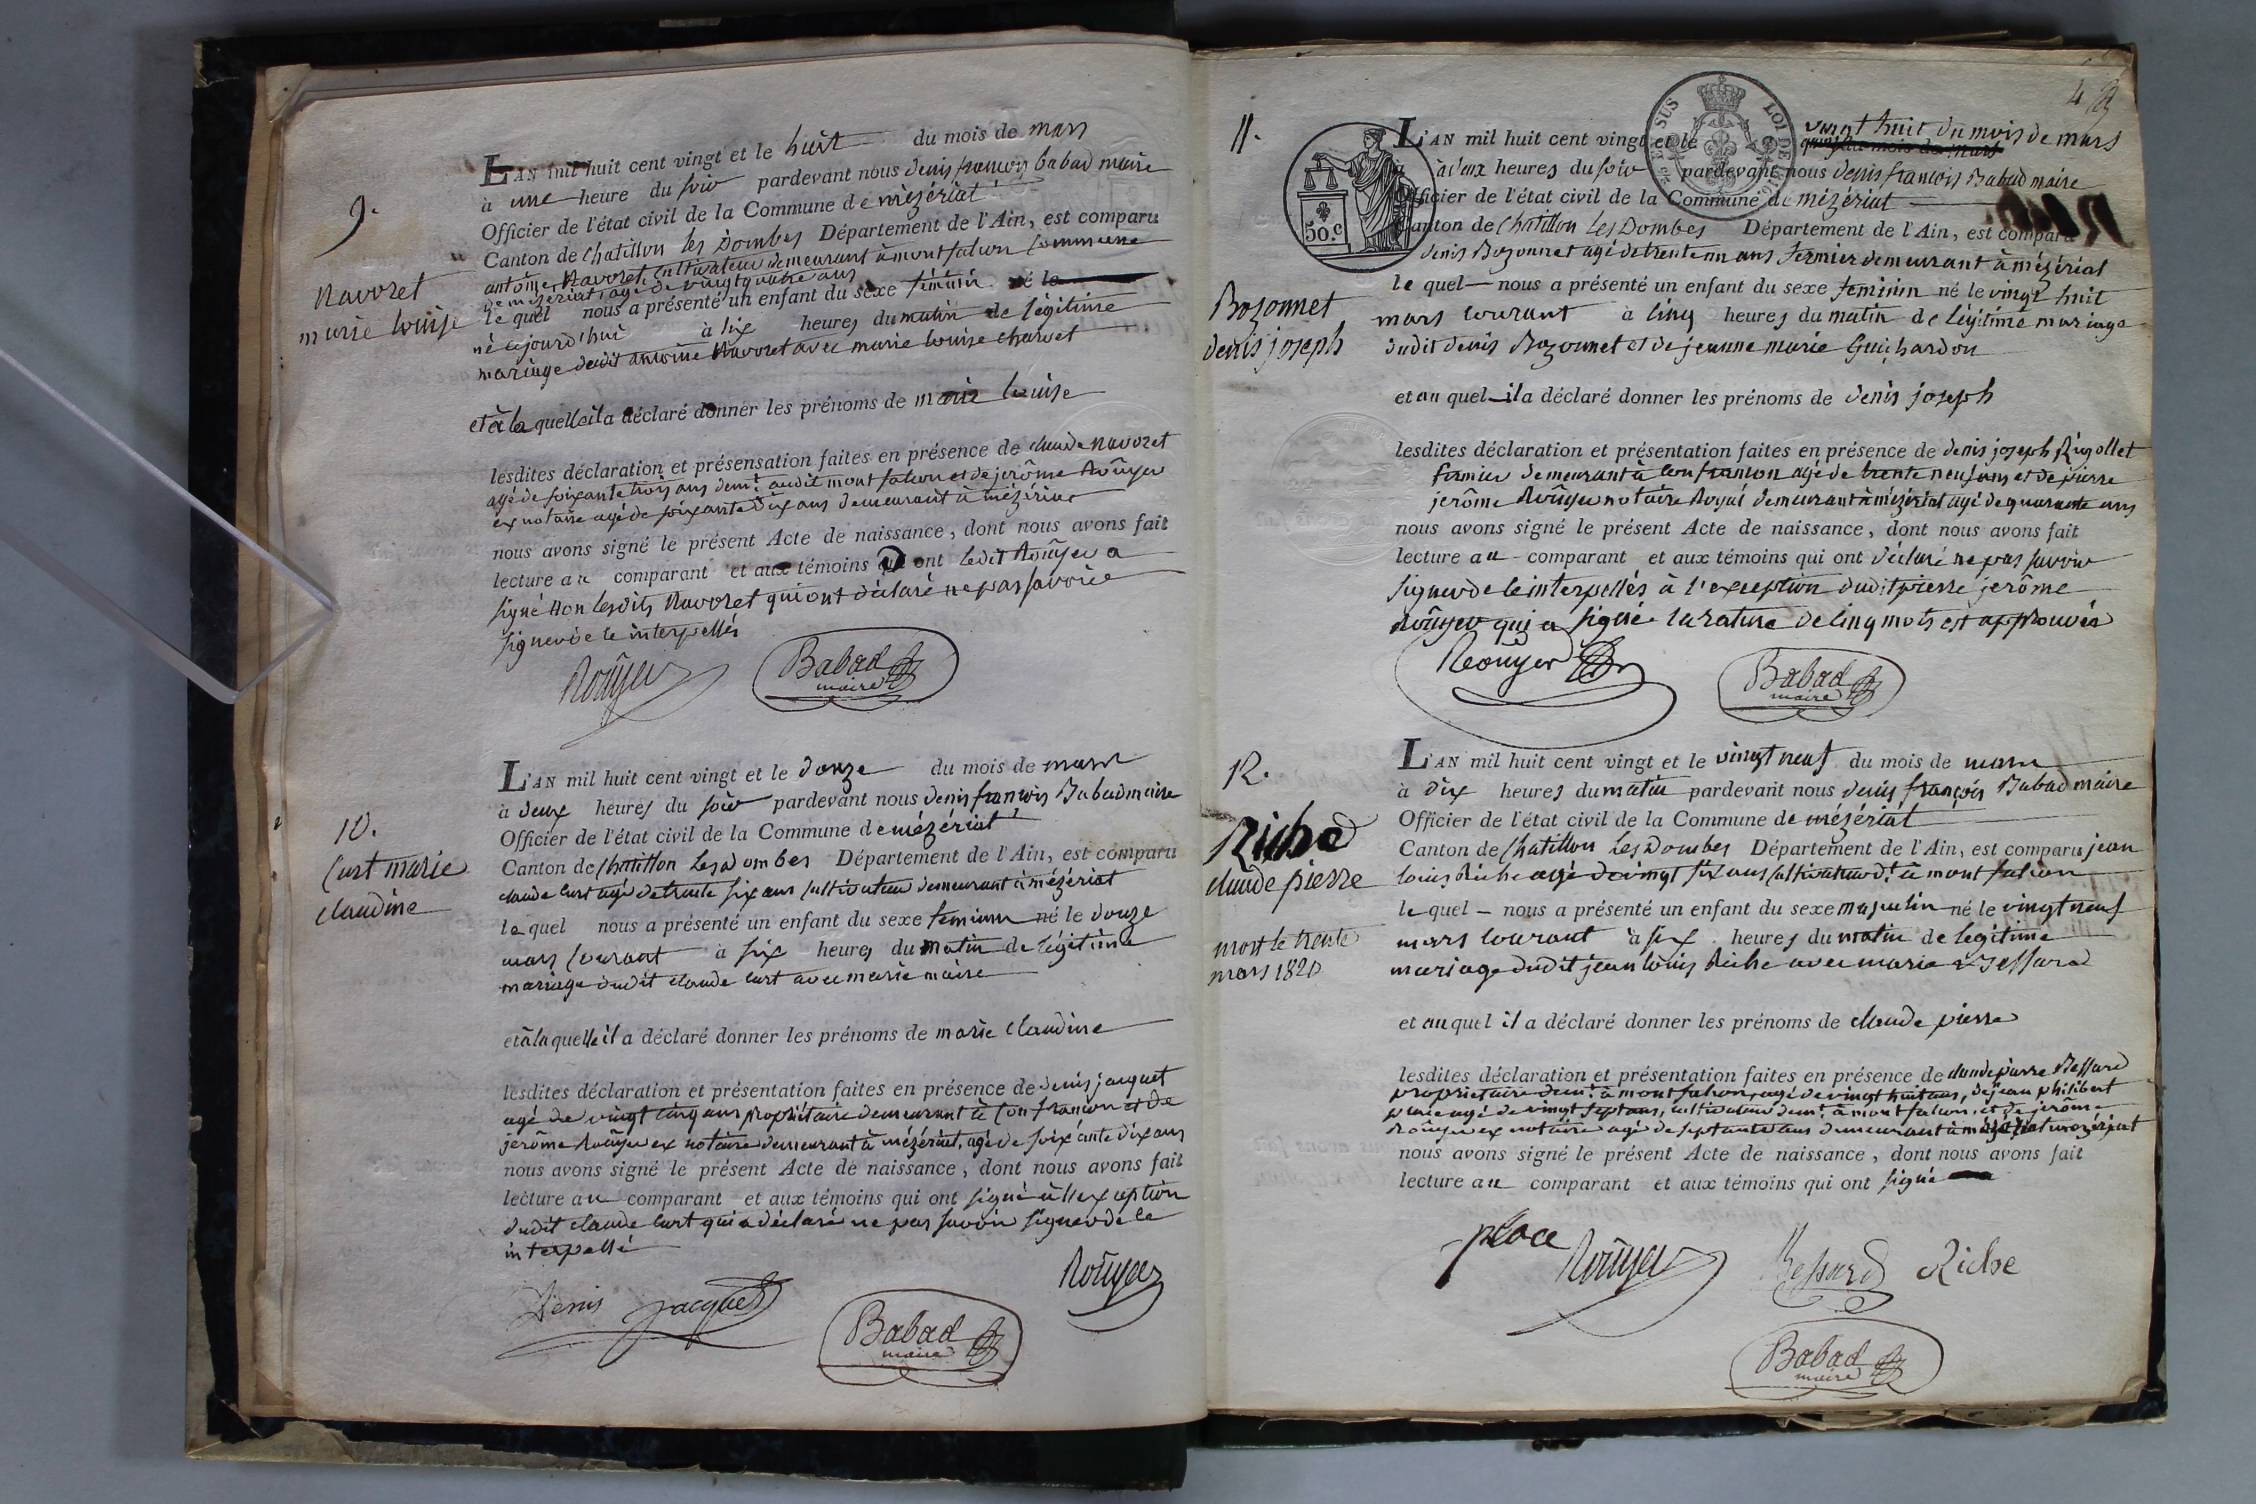 9.
Navoret
marie louise
L'AN mil huit cent vingt et le huit du mois de mars
à une heure du soir pardevant nous denis françois babad maire
Officier de l'état civil de la Commune de mézériat
Canton de Chatillon les Dombes Département de l'Ain, est comparu
antoine Navoret, cultivateur demeurant à montfalcon commune
de mézériat, agé de vingt quatre ans
le quel nous a présenté un enfant du sexe féminin né le
né cejourd'hui à six heures du matin de légitime
mariage dudit antoine Navoret avec marie louise charvet
et à la quelle il a déclaré donner les prénoms de marie louise
lesdites déclaration et présensation faites en présence de claude navoret
agé de soixante trois ans demt. audit montfalcon et de jerôme Roûyer
ex notaire agé de soixante dix ans demeurant à mézériat
nous avons signé le présent Acte de naissance, dont nous avons fait
lecture au comparant et aux témoins qui ont ledit Roûyer a
signé non lesdits Navoret qui ont déclaré ne pas savoir
signer de ce interpellés
Roûyer Babad
maire
10.
Curt marie
claudine
L'AN mil huit cent vingt et le douze du mois de mars
à deux heures du soir pardevant nous denis françois Babad maire
Officier de l'état civil de la Commune de mézériat
Canton de Chatillon les dombes Département de l'Ain, est comparu
claude curt agé de trente six ans cultivateur demeurant à mézériat
le quel nous a présenté un enfant du sexe feminin né le douze
mars courant à six heures du matin de légitime
mariage dudit claude curt avec marie maire
et à la quelle il a déclaré donner les prénoms de marie claudine
lesdites déclaration et présentation faites en présence de denis jacquet
agé de vingt cinq ans propriétaire demeurant à confrançon et de
jerôme Roûyer ex notaire demeurant à mézériat, agé de soixante dix ans
nous avons signé le présent Acte de naissance, dont nous avons fait
lecture au comparant et aux témoins qui ont signé à l'exception
dudit claude curt qui a déclaré ne pas savoir signer de ce
interpellé
Roûyer
Denis jacquet Babad
maire
4
11.
Bozonnet
denis joseph
50.c
LOI DE
L'AN mil huit cent vingt et le vingt huit du mois de mars
à deux heures du soir pardevant nous denis françois Babad maire
Officier de l'état civil de la Commune de mézériat
Canton de Chatillon les Dombes Département de l'Ain, est comparu
denis Bozonnet agé de trente un ans fermier demeurant à mézériat
le quel nous a présenté un enfant du sexe feminin né le vingt huit
mars courant à cinq heures du matin de légitime mariage
dudit denis Bozonnet et de jeanne marie Guichardon
et au quel il a déclaré donner les prénoms de denis joseph
lesdites déclaration et présentation faites en présence de denis joseph Rigollet
fermier demeurant à confrançon agé de trente neuf ans et de pierre
jerôme Roûyer notaire Royal demeurant à mézériat agé de quarante ans
nous avons signé le présent Acte de naissance, dont nous avons fait
lecture au comparant et aux témoins qui ont déclaré ne pas savoir
signer de ce interpellés à l'exception dudit pierre jerôme
Roûyer qui a signé. la rature de cinq mots est approuvée
Roûyer Babad
maire
12.
Riche
claude pierre
mort le trente
mars 1820
L'AN mil huit cent vingt et le vingt neuf du mois de mars
à dix heures du matin pardevant nous denis françois Babad maire
Officier de l'état civil de la Commune de mézériat
Canton de Chatillon les Dombes Département de l'Ain, est comparu jean
louis Riche agé de vingt six ans cultivateur dt. à montfalcon
le quel nous a présenté un enfant du sexe masculin né le vingt neuf
mars courant à six heures du matin de légitime
mariage dudit jean louis Riche avec marie Bessard
et au quel il a déclaré donner les prénoms de claude pierre
lesdites déclaration et présentation faites en présence de claude pierre Bessard
propriétaire demt. à montfalcon, agé de vingt huit ans, de jean philibert
place agé de vingt sept ans, cultivateur demt. à montfalcon, et de jerôme
Roûyer ex notaire agé de septante ans demeurant à mézériat
nous avons signé le présent Acte de naissance, dont nous avons fait
lecture au comparant et aux témoins qui ont signé
place Roûyer Bessard Riche
Babad
maire